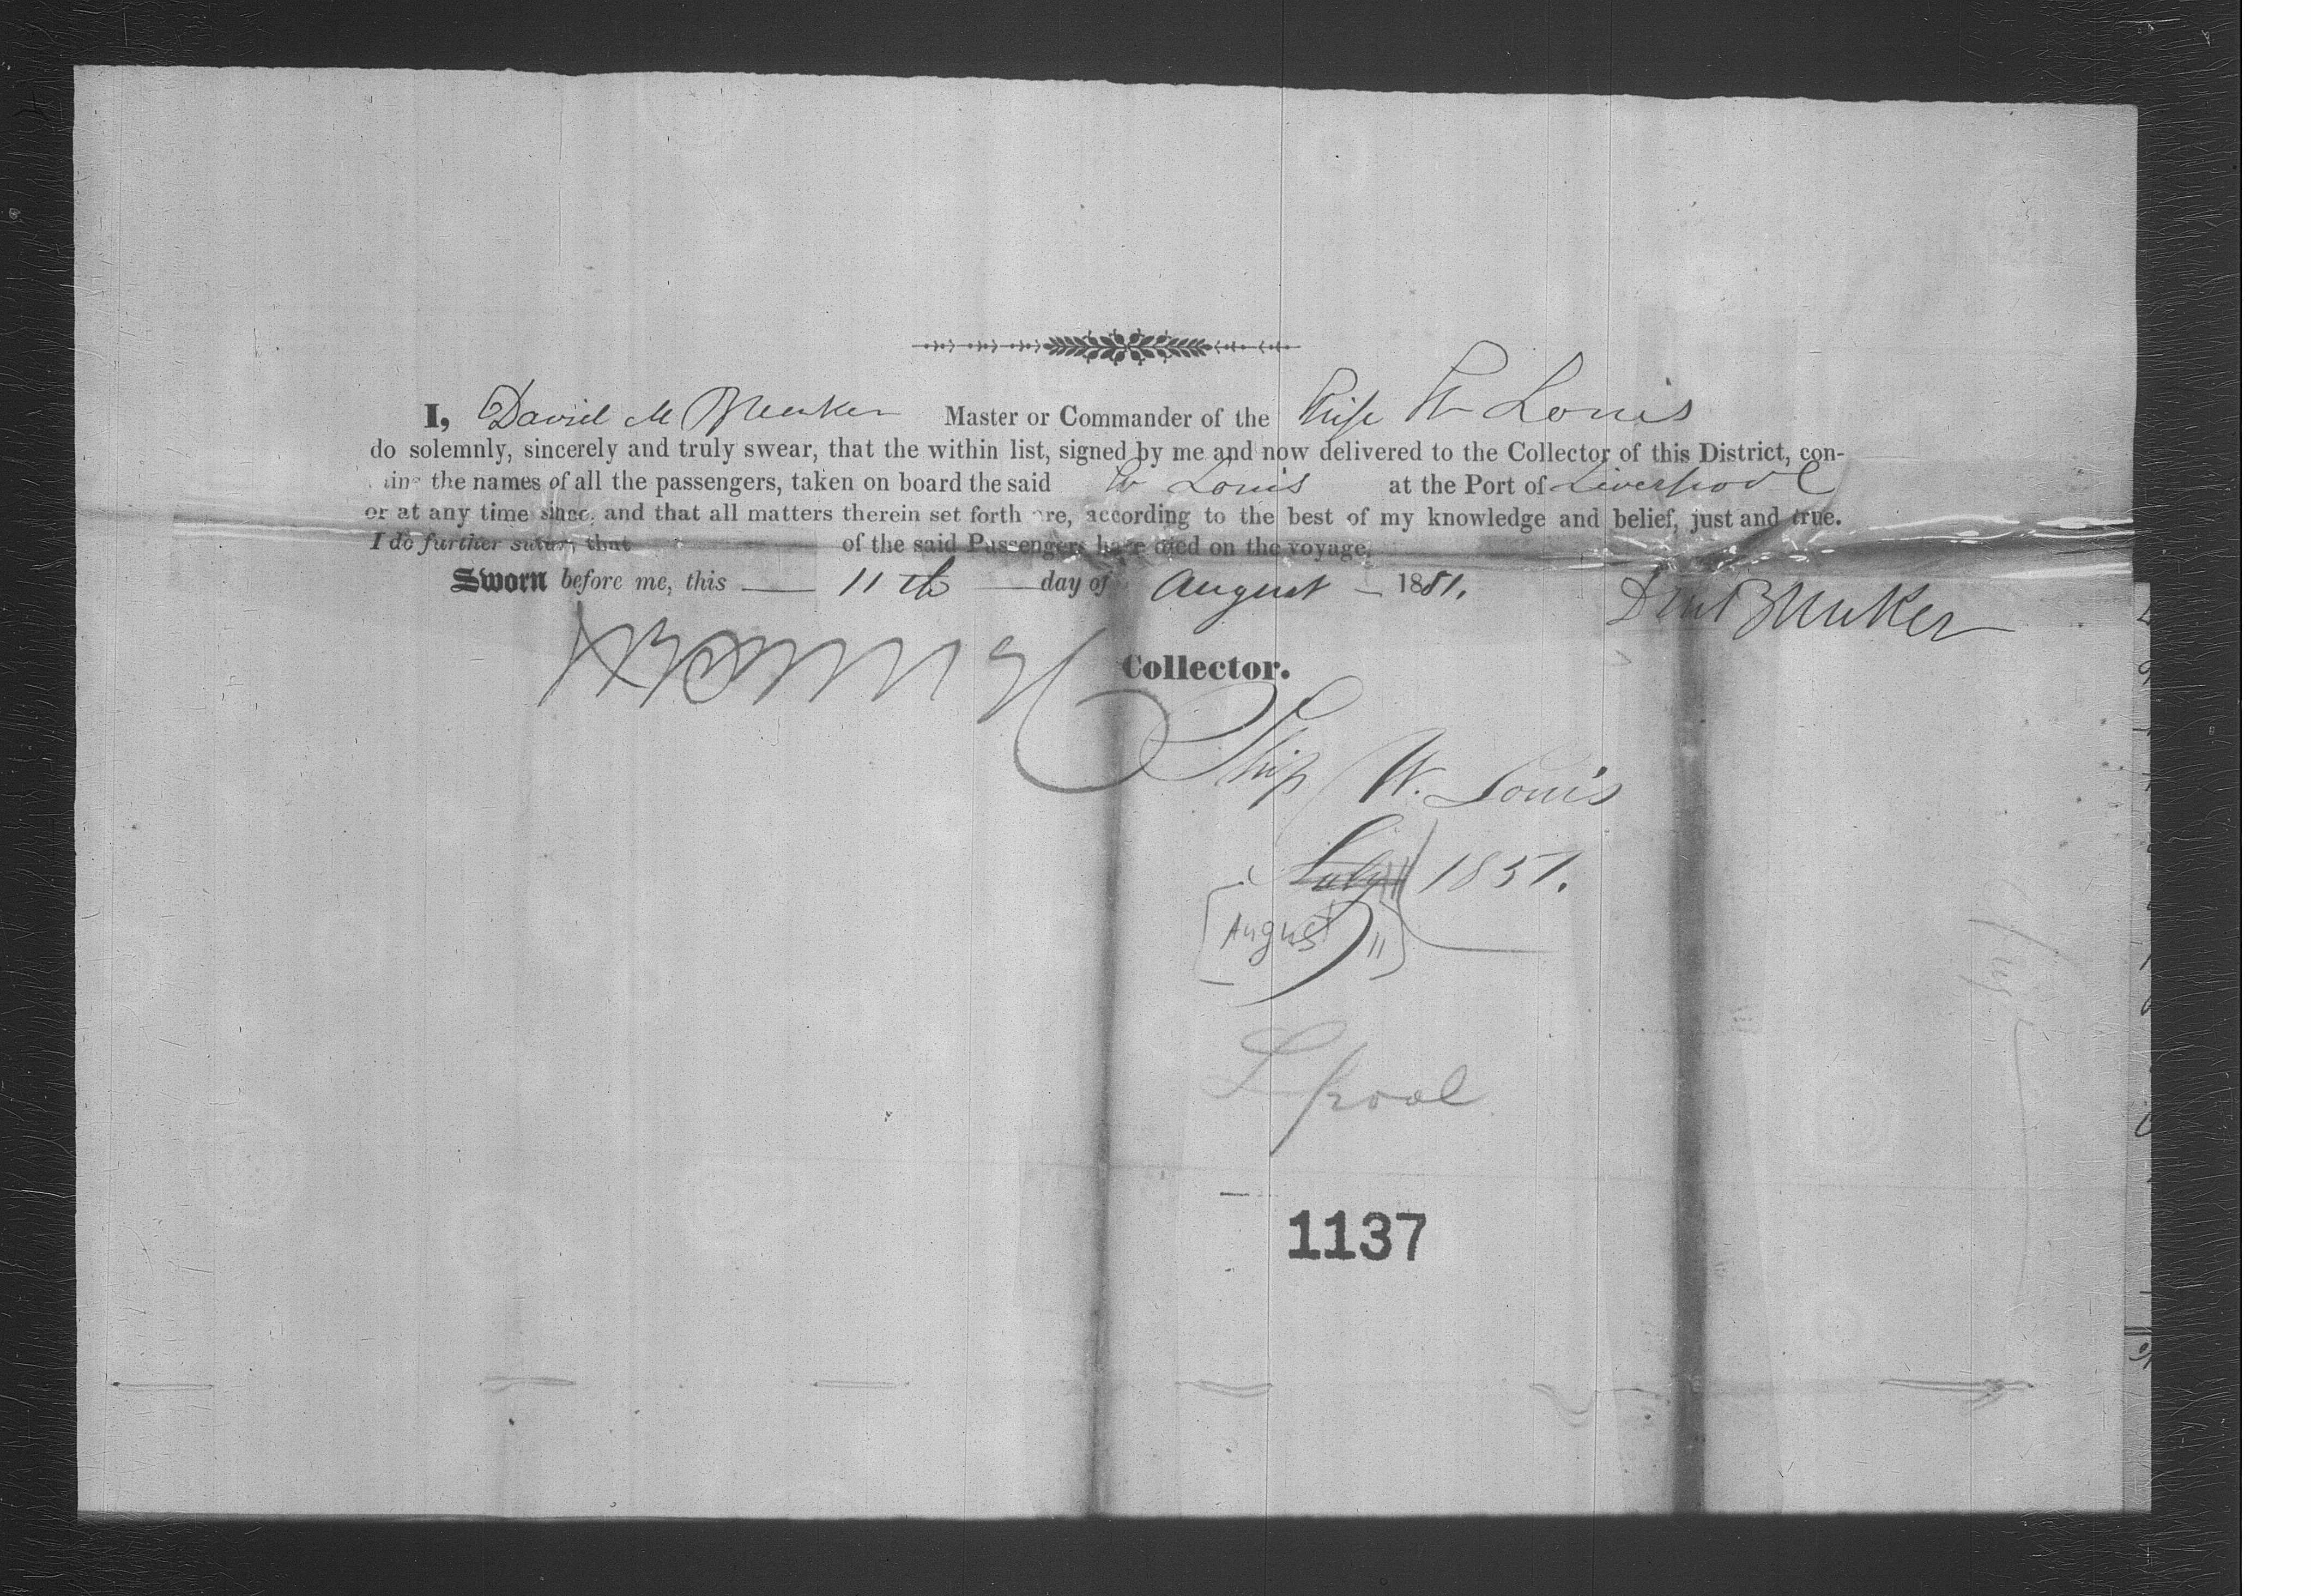 I, David M Bunker Master or Commander of the Ship W Louis
do solemnly, sincerely and truly swear, that the within list, signed by me and now delivered to the Collector of this District, con-
the names of all the passengers, taken on board the said W Louis at the Port of Liverpool
or at any time since, and that all matters therein set forth are, according to the best of my knowledge and belief, just and true.
I do further swear, that of the said Passengers have died on the voyage.
Sworn before me, this 11th day of August 1851.
D M Bunker
Collector.
Ship W. Louis
July 1851.
[August 11]
Lpool
1137